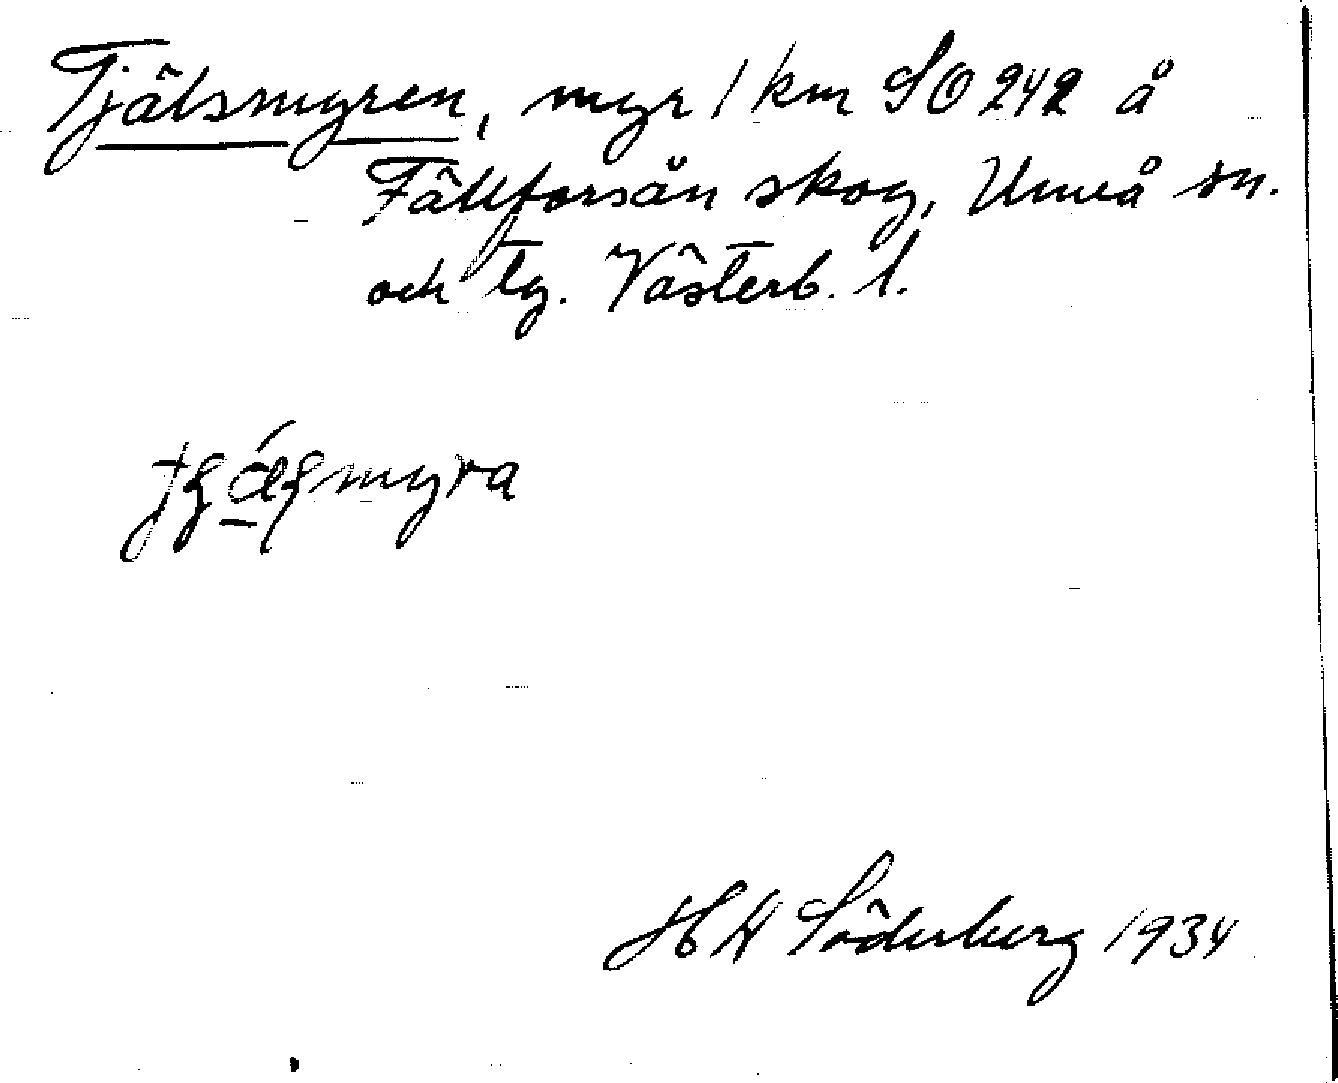 Tjälsmyren, myr 1 km SO 242 å
Fällforsån skog, Umeå sn.
och tg. Västerb. l.
H H Söderberg 1934